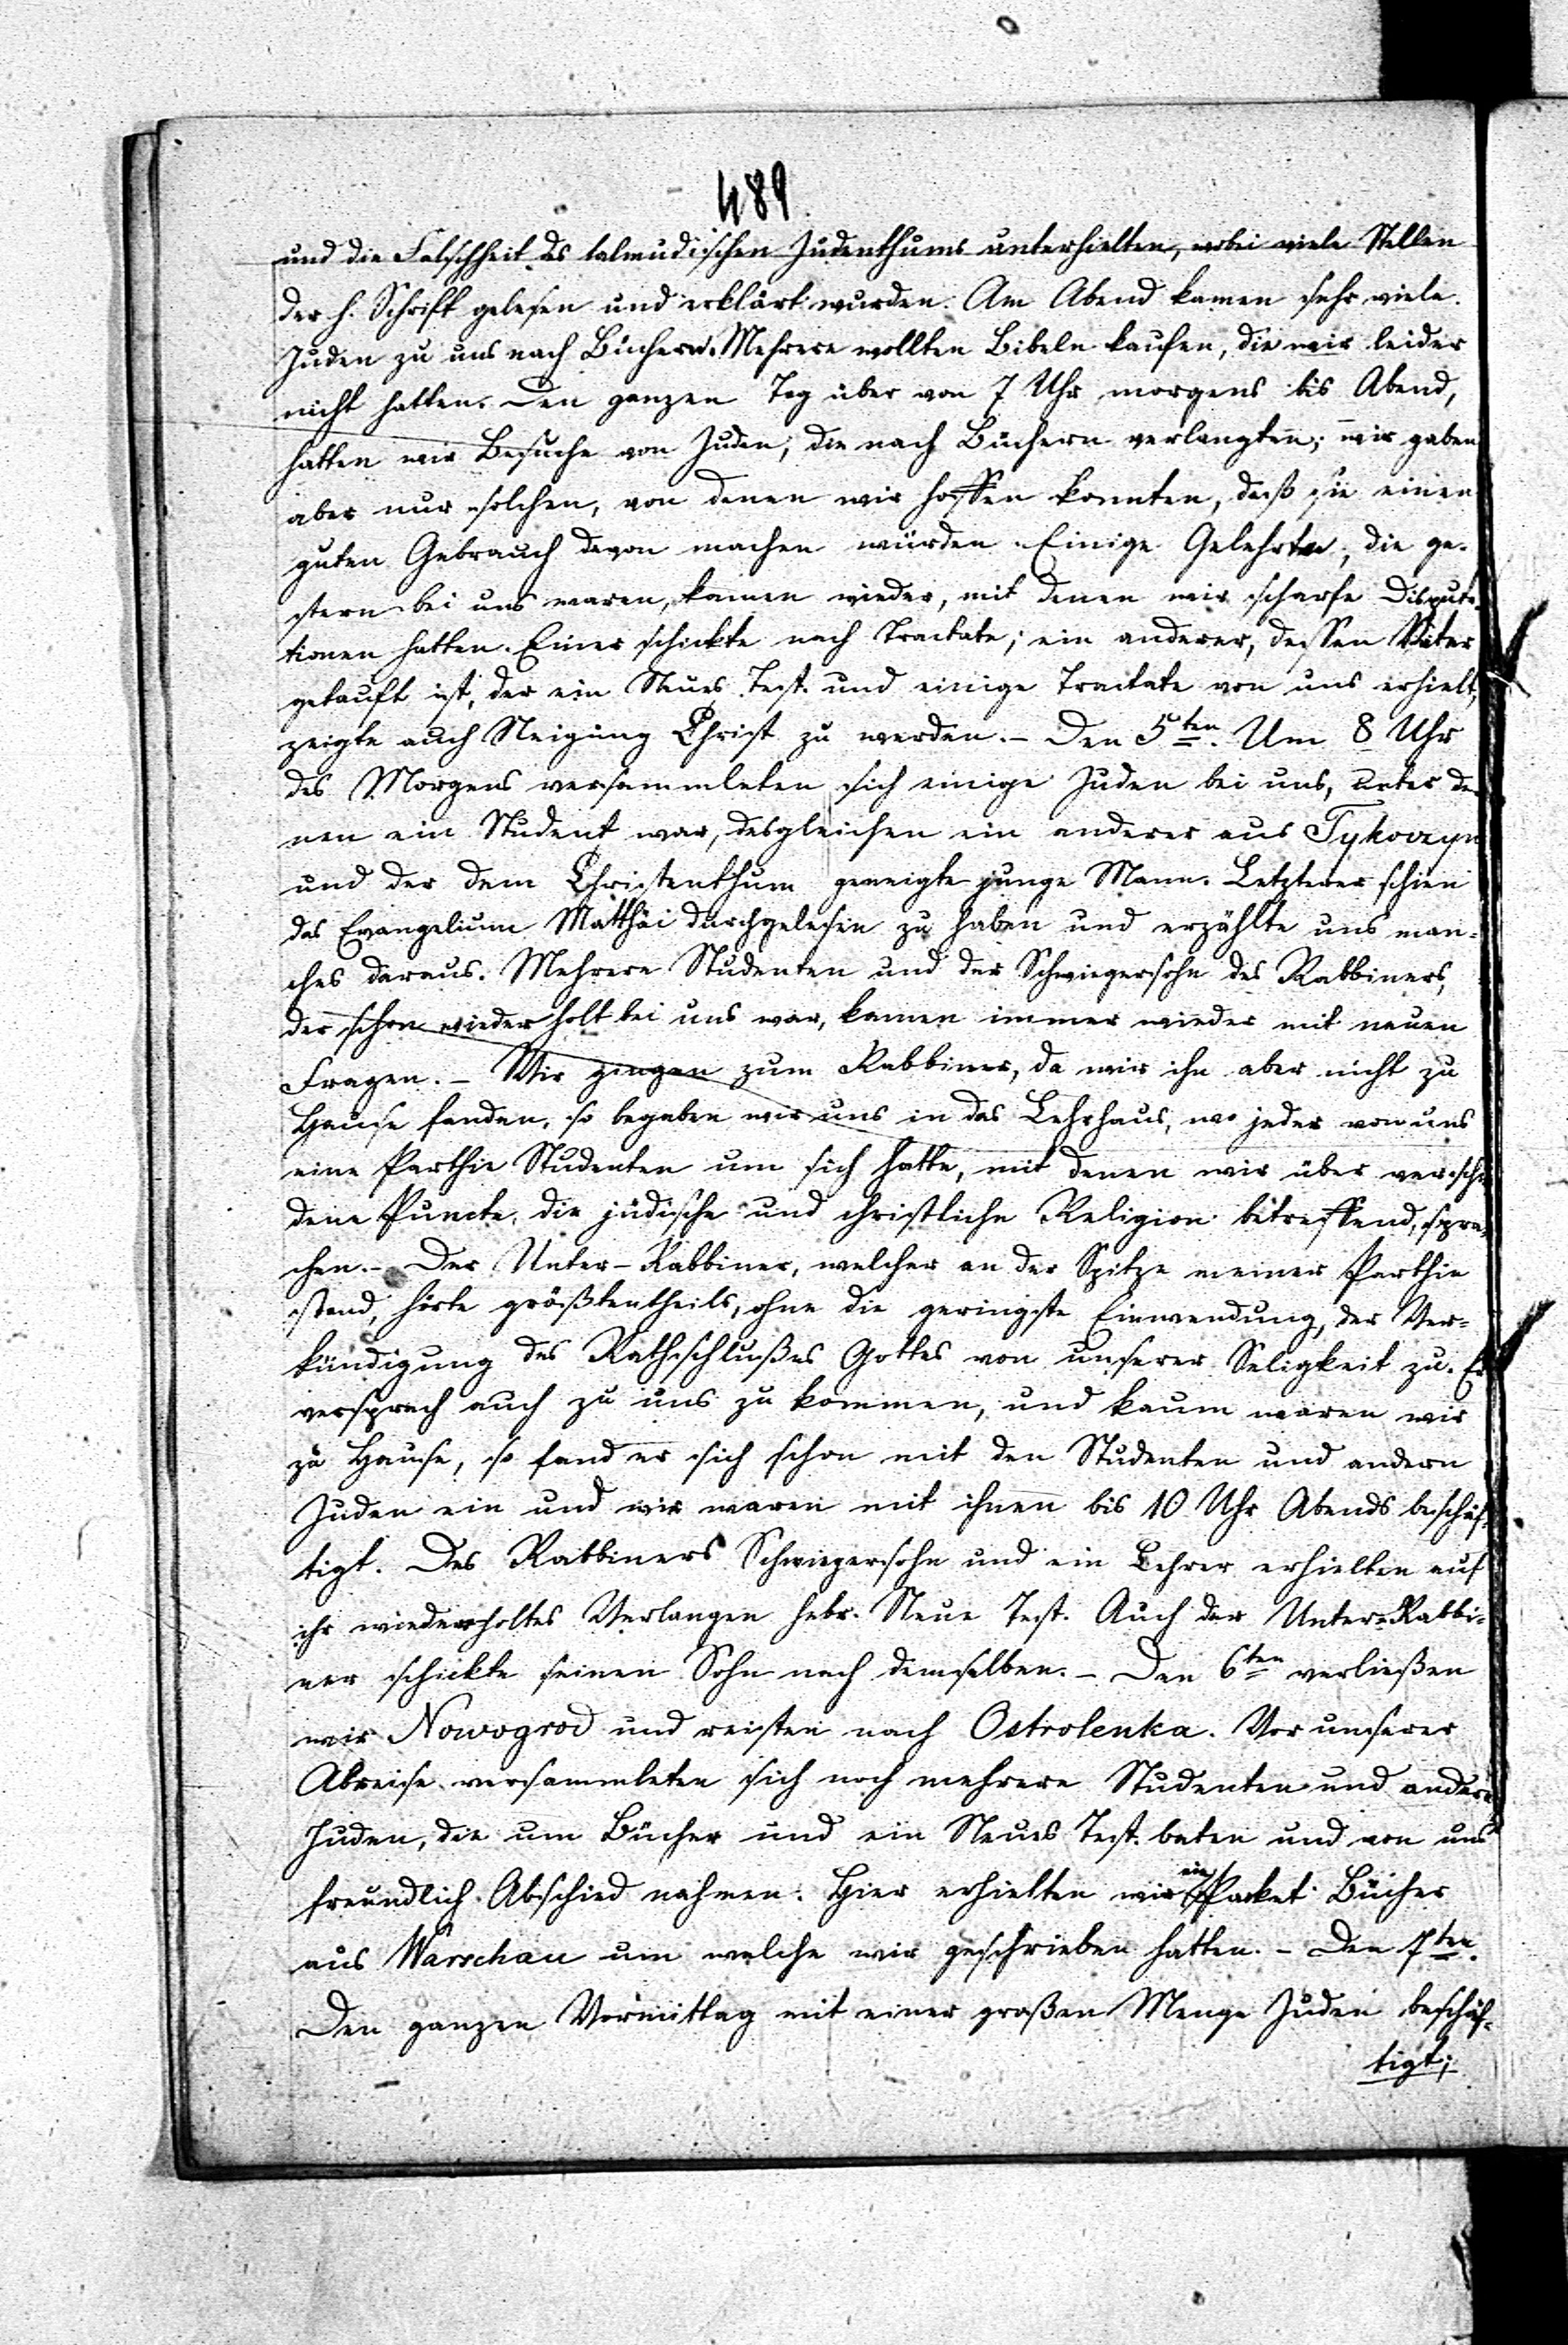 489.
und die Falschheit des talmudischen Judenthums unterhielten, wobei viele Stellen
der h. Schrift gelesen und erklärt wurden. Am Abend kamen sehr viele
Juden zu uns nach Büchern. Mehrere wollten Bibeln kaufen, die wir leider
nicht hatten. Den ganzen Tag über von 7 Uhr morgens bis Abend,
hatten wir Besuche von Juden, die nach Büchern verlangten; wir gaben
aber nur solchen, von denen wir hoffen konnten, daß sie einen
guten Gebrauch davon machen würden. Einige Gelehrte, die ge-
stern bei uns waren, kamen wieder, mit denen wir scharfe Disputa-
tionen hatten. Einer schickte nach Tractate; ein anderer, dessen Vater
getauft ist, der ein Neues Test. und einige Tractate von uns erhielt,
zeigte auch Neigung Christ zu werden. – Den 5ten. Um 8 Uhr
des Morgens versammleten sich einige Juden bei uns, unter de-
nen ein Student war, desgleichen ein anderer aus Tykoczyn
und der dem Christenthum geneigte junge Mann. Letzterer schien
das Evangelium Matthäi durchgelesen zu haben und erzählte uns man-
ches daraus. Mehrere Studenten und der Schwiegersohn des Rabbiners,
der schon wiederholt bei uns war, kamen immer wieder mit neuen
Fragen. – Wir gingen zum Rabbiner, da wir ihn aber nicht zu
Hause fanden, so begaben wir uns in das Lehrhaus, wo jeder von uns
eine Parthie Studenten um sich hatte, mit denen wir über verschie-
dene Puncte, die jüdische und christliche Religion betreffend, spra-
chen. – Der Unter-Rabbiner, welcher an der Spitze meiner Parthie
stand, hörte größtentheils, ohne die geringste Einwendung, der Ver-
kündigung des Rathschlußes Gottes von unserer Seligkeit zu. Er
versprach auch zu uns zu kommen, und kaum waren wir
zu Hause, so fand er sich schon mit den Studenten und andern
Juden ein und wir waren mit ihnen bis 10 Uhr Abends beschäf-
tigt. Des Rabbiners Schwiegersohn und ein Lehrer erhielten auf
ihr wiederholtes Verlangen hebr. Neue Test. Auch der Unter-Rabbi-
ner schickte seinen Sohn nach demselben. – Den 6ten verließen
wir Nowogrod und reisten nach Ostrolenka. Vor unserer
Abreise versammleten sich noch mehrere Studenten und andere
Juden, die um Bücher und ein Neues Test. baten und von uns
freundlich Abschied nahmen. Hier erhielten wir ein Packet Bücher
aus Warschau um welche wir geschrieben hatten. – Den 7ten.
Den ganzen Vormittag mit einer großen Menge Juden beschäf-
tigt;